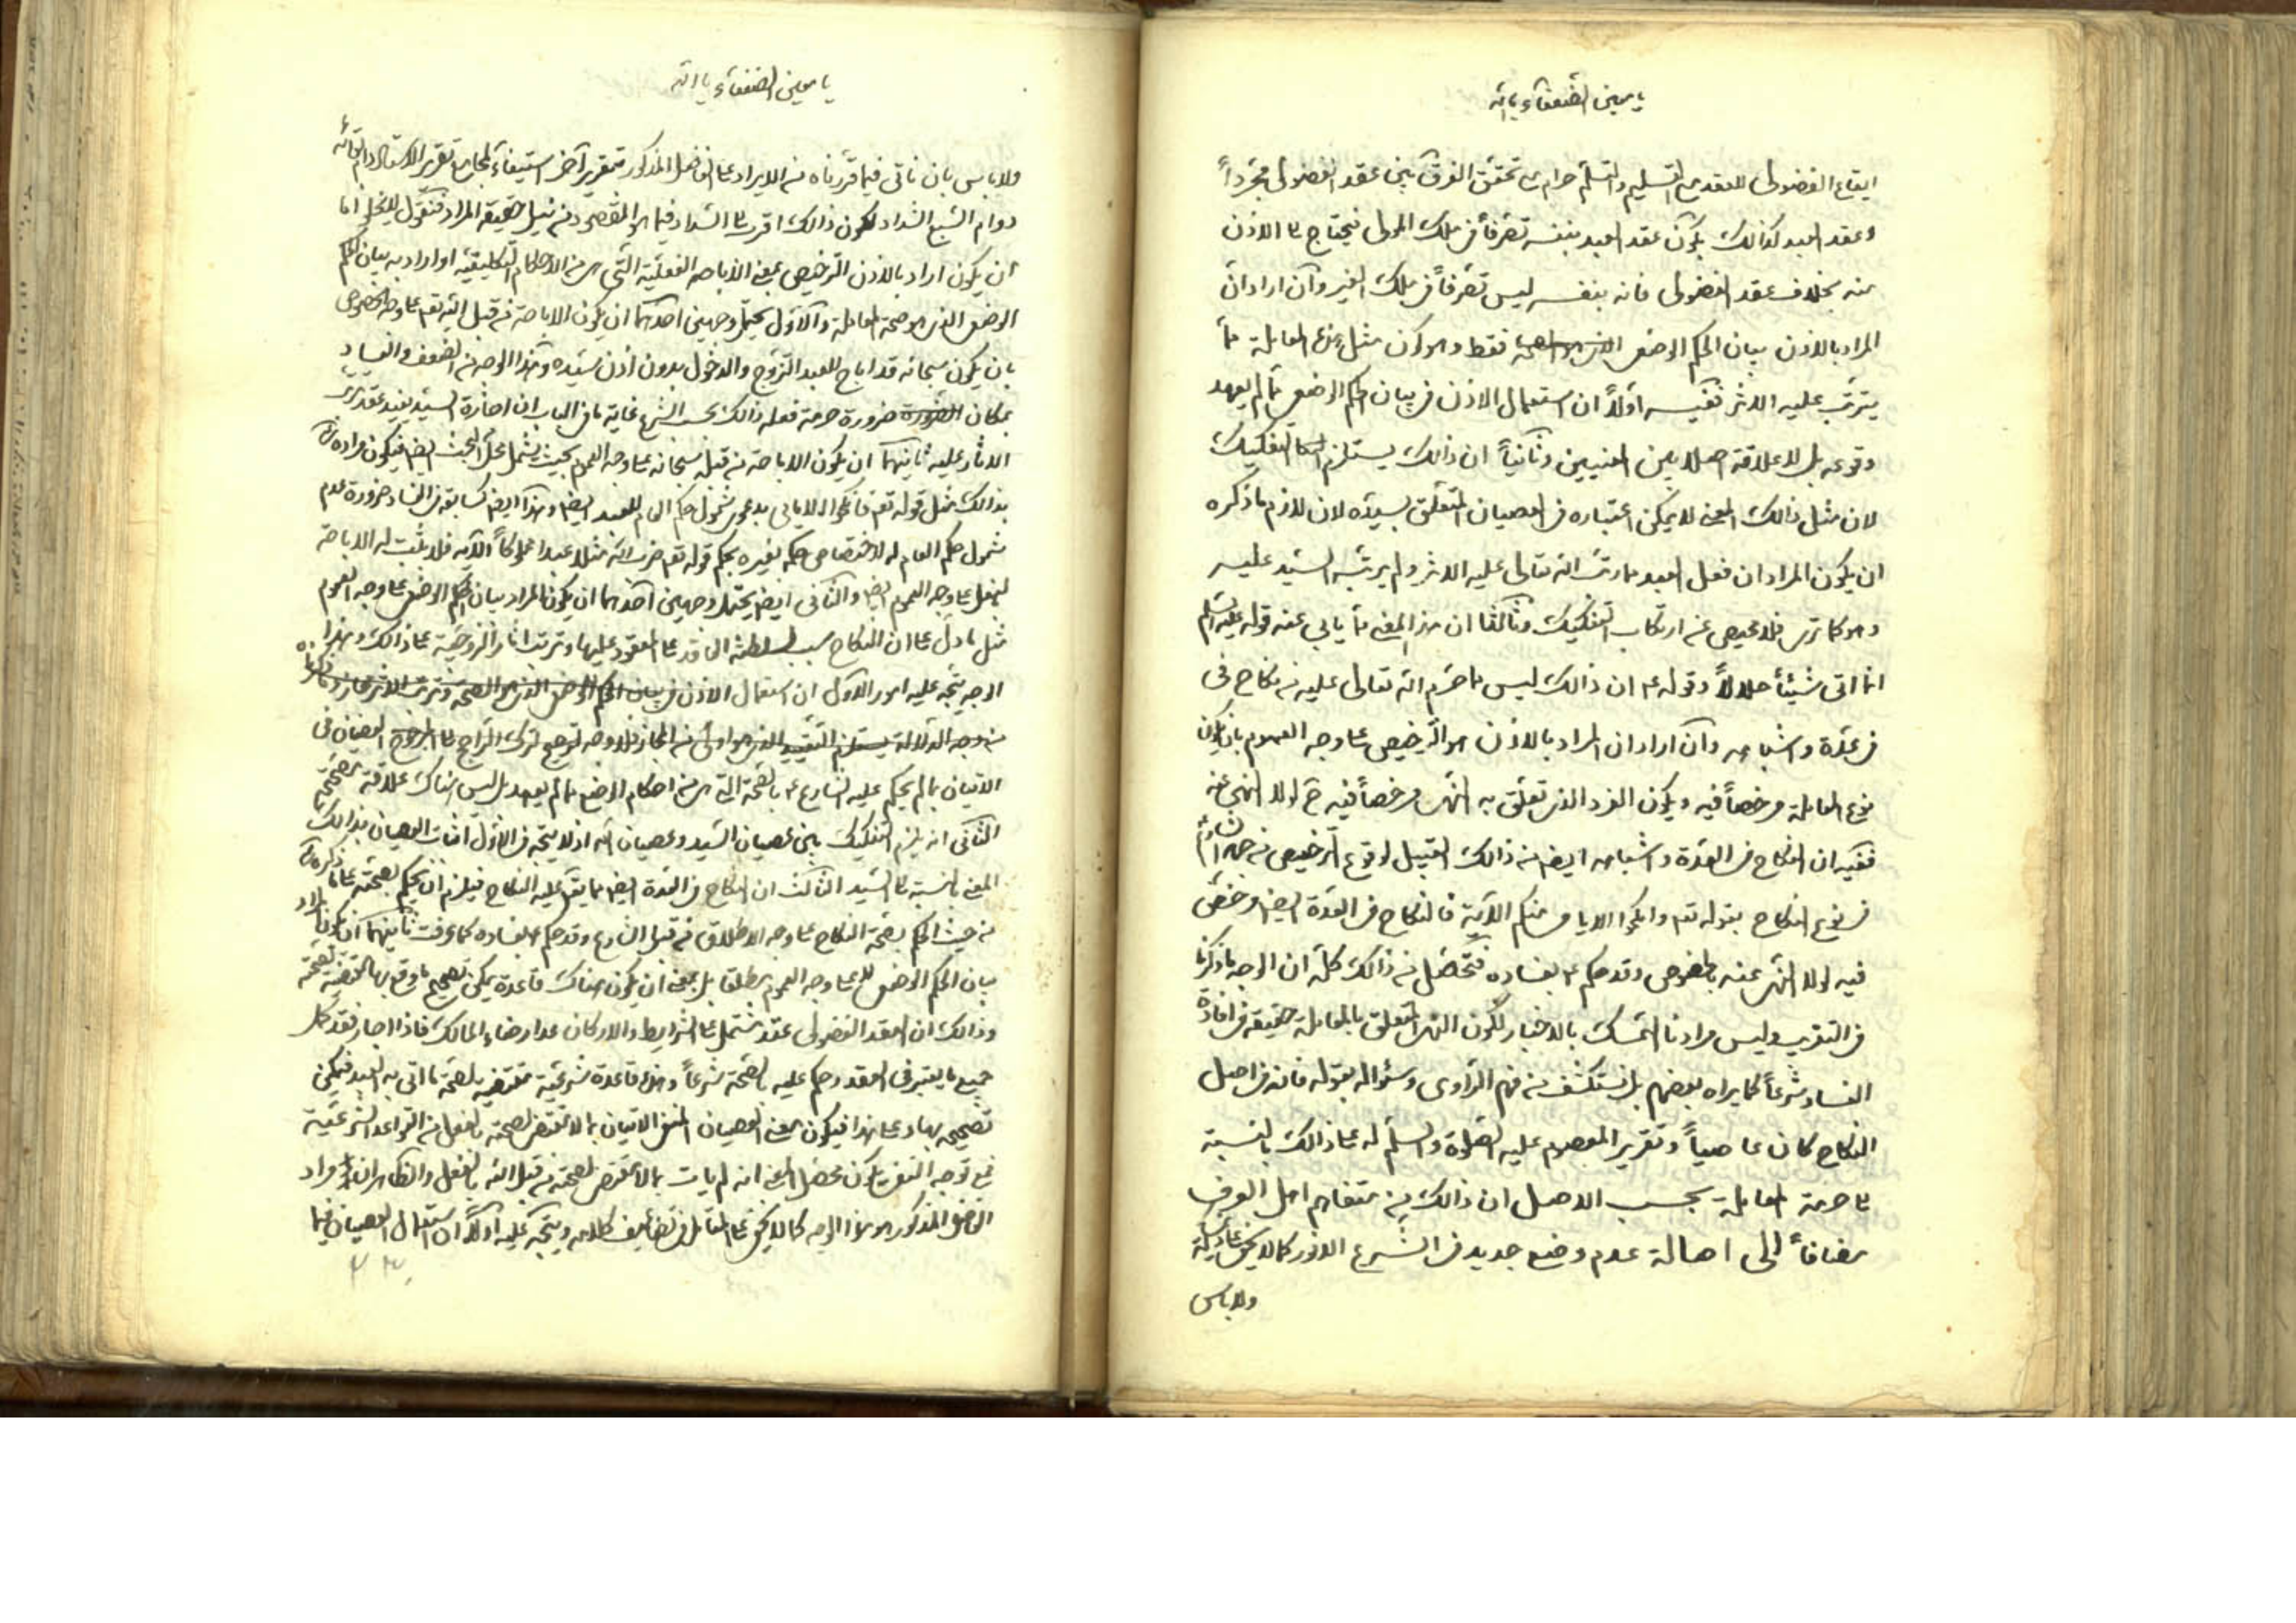 يا معين الضعفآء يا الله
ايقاع الفضولى للعقد مع التسليم والتسلّم حرام مع تحقق الفرق بين عقد الفضولى مجرّداً
وعقد العبد كذالك بكون عقد العبد بنفسه تصرّفاً فى ملك المولى فيحتاج الى الاذن
منه بخلاف عقد الفضولى فانه بنفسه ليس تصّرفاً فى ملك الغير وآن اراد ان
المراد بالاذن بيان الحكم الوضعى فقط وهو كون مثل هذه المعاملة ممّا
يترتّب عليه الاثر ففيه اولاً ان استعمال الاذن فى بيان الحكم الوضعى ممّا لم يعهد
وقوعه بل لا علاقة اصلا بين المعنيين وثانياً ان ذالك يستلزم التفكيك
لان مثل ذالك المعنى لا يمكن اعتباره فى العصيان المتعلّق بسيّده لان لازم ما ذكره
ان يكون المراد ان فعل العبد مما رتّب الله تعالى عليه الاثر ولم يرتّبه السيّد عليه
وهو كما ترى فلا محيص عن ارتكاب التفكيك وثالثا ان هذا المعنى ممّا يابى عنه قوله عليه السلم
انما اتى شيئاً حلالاً وقوله ع ان ذالك ليس ما حرّم الله تعالى عليه من نكاح فى
فى عدّة واشباهه وآن اراد ان المراد بالاذن هو الترخيص على وجه العموم بان يكون
نوع المعاملة مرخصاً فيه ويكون الفرد الذى تعلّق به النهى مرخصاً فيه ح لولا النهى عنه
ففيه ان النكاح فى العدّة واشباهه ايضا من ذالك القبيل لوقوع الترخيص من
فى نوع النكاح بقوله تعـ وانكحوا الايامى منكم الآية فالنكاح فى العدّة ايضا مرخّص
فيه لولا النهى عنه بالخصوص وقد حكم ع بفساده فتحصّل من ذالك كلّه ان الوجه ما ذكرنا
فى التقريب وليس مرادنا التمسّك بالاخبار لكون النهى المتعلّق بالمعاملة حقيقة فى افادة
الفساد شرعاً كما يراه بعضهم بل نستكشف من فهم الراوى وسئواله بقوله فانه فى اصل
النكاح كان عاصياً وتقرير المعصوم عليه الصّلوة والسّلم له على ذالك بالنسبة
الى حرمة المعاملة بحسب الاصل ان ذالك من متفاهم اهل العرف
مضافاً الى اصالة عدم وضع جديد فى الشّرع الانور كما لا يخفى
ولا باس
يا معين الضعفآء يا الله
ولا باس بان ناتى فيما قرّرناه من الايراد على الفاضل المذكور بتقرير آخر استيفاءً
ان يكون اراد بالاذن الترخيص بمعنى الاباحة الفعليّة التّى هى من الاحكام التكليفيّة او اراد به بيان الحكم
الوضعى الذى هو صحة المعاملة والآوّل يحتمل وجهين احدهما ان يكون الاباحة من قبل الله تعـ على وجه الخصوص
بان يكون سبحانه قد اباح للعبد التزوّج والدخول بدون اذن سيّده وهذا الوجه من الضعف والفساد
بمكان ضرورة حرمة فعله ذالك بحسب الشرع غاية ما فى الباب ان اجازة السيّد يفيد
الاثار عليه ثانيهما ان يكون الاباحة من قبله سبحانه على وجه العموم بحيث يشمل محلّ البحث ايضا فيكون مراده
شمول حكم العام له لاختصاص حكمه بغيره بحكم قوله تعـ ضرب الله مثلا عبدا مملوكاً الآية فلا يثبت له الاباحة
على وجه العموم ايضا والثانى ايضا يحتمل وجهين آحدهما ان يكون المراد بيان الحكم الوضعى على وجه العموم
مثل ما دلّ على ان النكاح سبب لسلطنة العاقد على المعقود عليها وترتّب آثار الزوجيّة على ذالك وبهذا
الوجه يتّجه عليه امور الآوّل ان استعمال الاذن فى بيان الحكم الوضعى
الاتيان بما لم يحكم عليه الشارع ع بالصّحة التى هى من احكام الوضع مما لم يعهد بل ليس هناك علاقة
الثّانى انه يلزم التفكيك بين عصيان السّيد وعصيان الله اذ لا يتّجه فى الاوّل اثبات العصيان بذالك
المعنى بالنسبة الى السّيد الثالث ان النكاح فى العدّة ايضا مما يقع عليه النكاح فيلزم ان يحكم بصحّته على ما ذكره
من حيث الحكم بصّحة النكاح على وجه الاطلاق من قبل الشارع وقد حكم ع بفساده كما عرفت ثانيهما ان يكون المراد
بيان الحكم الوضعى لا على وجه العموم مطلقا بل بمعنى ان يكون هناك قاعدة يمكن تصحيح ما وقع بها
وذالك ان العقد الفضولى عقد مشتمل على الشرايط والاركان عدا رضاء المالك فاذا اجاز فقد كمل
جميع ما يعتبر فى العقد وحكم عليه بالصّحة شرعاً وهذه قاعدة شرعيّة مقتضية لصّحة ما اتى به العبد فيمكن
تصحيحه بها وعلى هذا فيكون معنى العصيان المنفى الاتيان بما لا يقتضى صحته بالفعل من القواعد الشرعيّة
فمع توجّه النفى يكون محصّل المعنى انه لم يات بما لا يقتضى صحّته من قبل الله بالفعل والظاهر ان مراد
الفاضل المذكور هو هذا الوجه كما لا يخفى على المتامّل فى تضاعيف كلامه ويتّجه عليه اوّلاً ان استعمال العصيان فيما